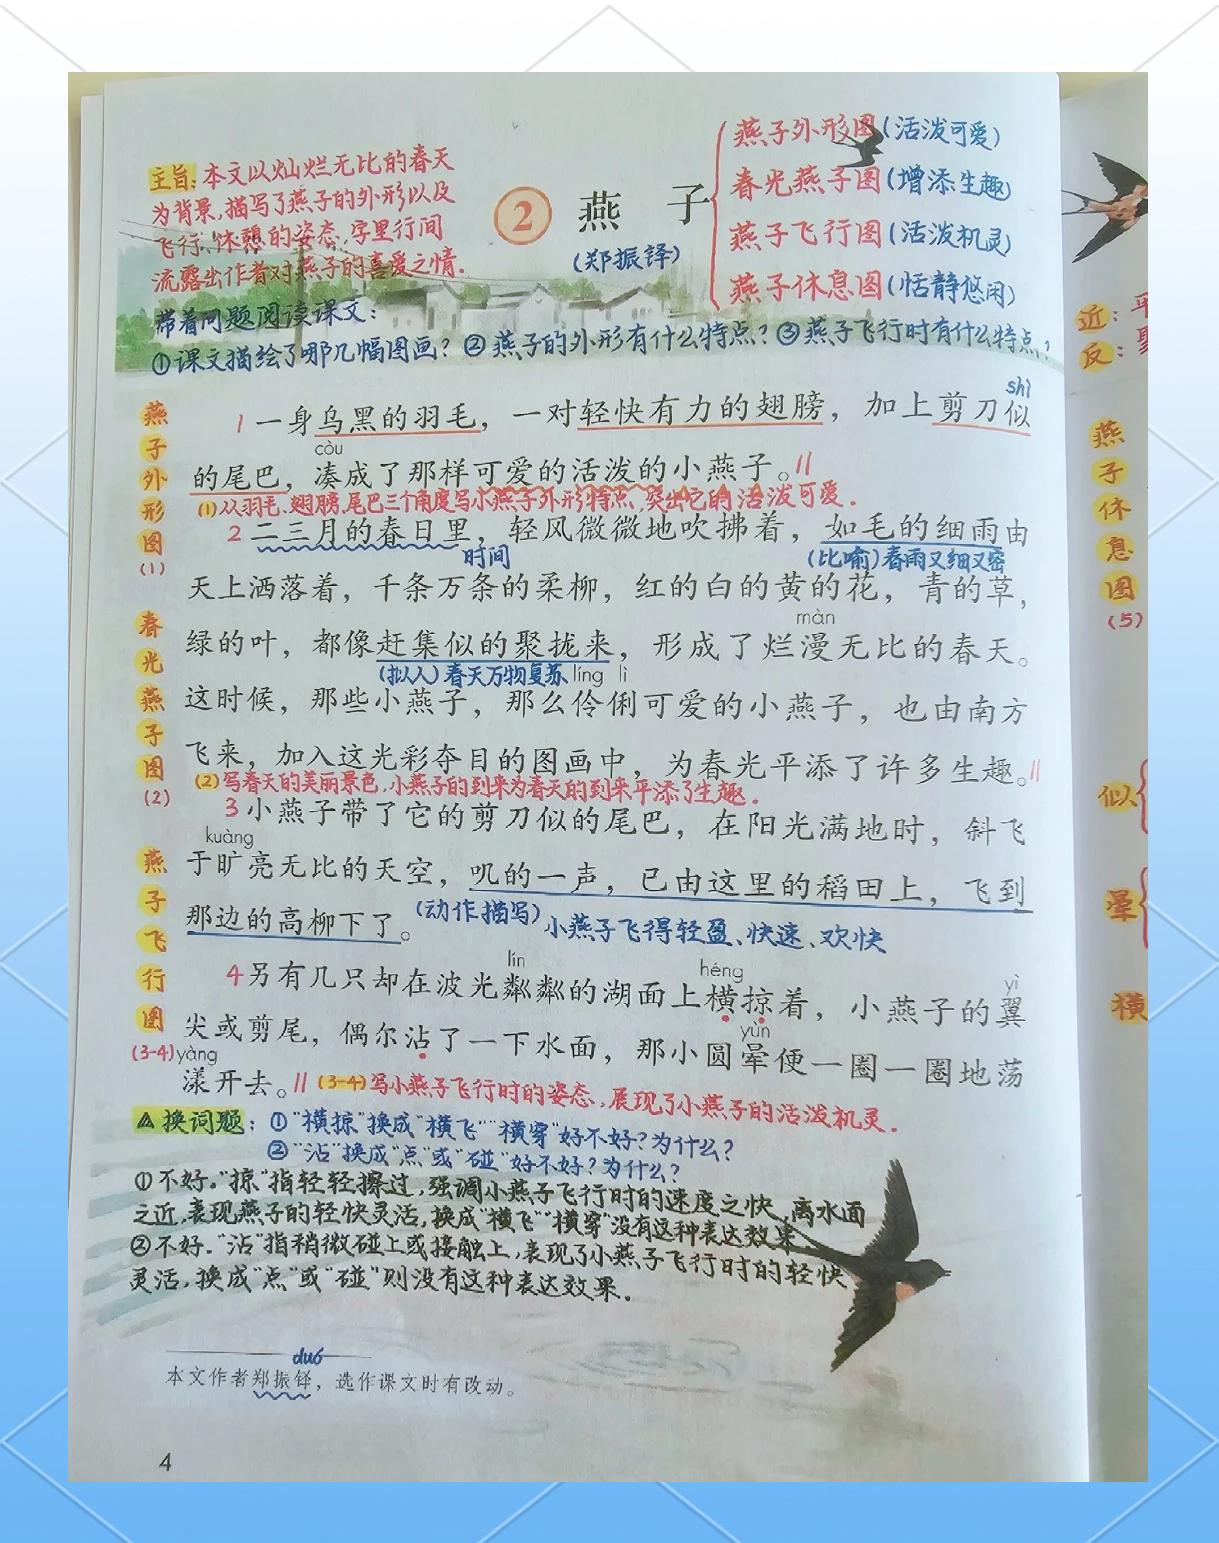 主旨:本文以灿烂无比的春天
为背景,描写了燕子的外形以及
飞行、休憩的姿态,字里行间
流露出作者对燕子的喜爱之情.
2 燕 子
(郑振铎)
燕子外形图(活泼可爱)
春光燕子图(增添生趣)
燕子飞行图(活泼机灵)
燕子休息图(恬静悠闲)
带着问题阅读课文:
①课文描绘了哪几幅图画?②燕子的外形有什么特点?③燕子飞行时有什么特点?
燕子外形图(1)
shì
1 一身乌黑的羽毛,一对轻快有力的翅膀,加上剪刀似
còu
的尾巴,凑成了那样可爱的活泼的小燕子。//
(1)从羽毛、翅膀、尾巴三个角度写小燕子外形特点,突出它的活泼可爱.
2 二三月的春日里,轻风微微地吹拂着,如毛的细雨由
时间 (比喻)春雨又细又密
天上洒落着,千条万条的柔柳,红的白的黄的花,青的草,
màn
春光燕子图(2)
绿的叶,都像赶集似的聚拢来,形成了烂漫无比的春天。
(拟人)春天万物复苏 líng lì
这时候,那些小燕子,那么伶俐可爱的小燕子,也由南方
飞来,加入这光彩夺目的图画中,为春光平添了许多生趣。//
(2)写春天的美丽景色,小燕子的到来为春天的到来平添了生趣.
3 小燕子带了它的剪刀似的尾巴,在阳光满地时,斜飞
kuàng
燕子飞行图(3-4)
于旷亮无比的天空,叽的一声,已由这里的稻田上,飞到
那边的高柳下了。(动作描写)小燕子飞得轻盈、快速、欢快
lín héng yì
4 另有几只却在波光粼粼的湖面上横掠着,小燕子的翼
yùn
尖或剪尾,偶尔沾了一下水面,那小圆晕便一圈一圈地荡
yàng
漾开去。//(3-4)写小燕子飞行时的姿态,展现了小燕子的活泼机灵.
换词题:①"横掠"换成"横飞""横穿"好不好?为什么?
②"沾"换成"点"或"碰"好不好?为什么?
①不好。"掠"指轻轻擦过,强调小燕子飞行时的速度之快,离水面
之近,表现燕子的轻快灵活,换成"横飞""横穿"没有这种表达效果
②不好."沾"指稍微碰上或接触上,表现了小燕子飞行时的轻快
灵活,换成"点"或"碰"则没有这种表达效果.
duó
本文作者郑振铎,选作课文时有改动。
4
近:
反:
燕子休息图(5)
似
晕
横